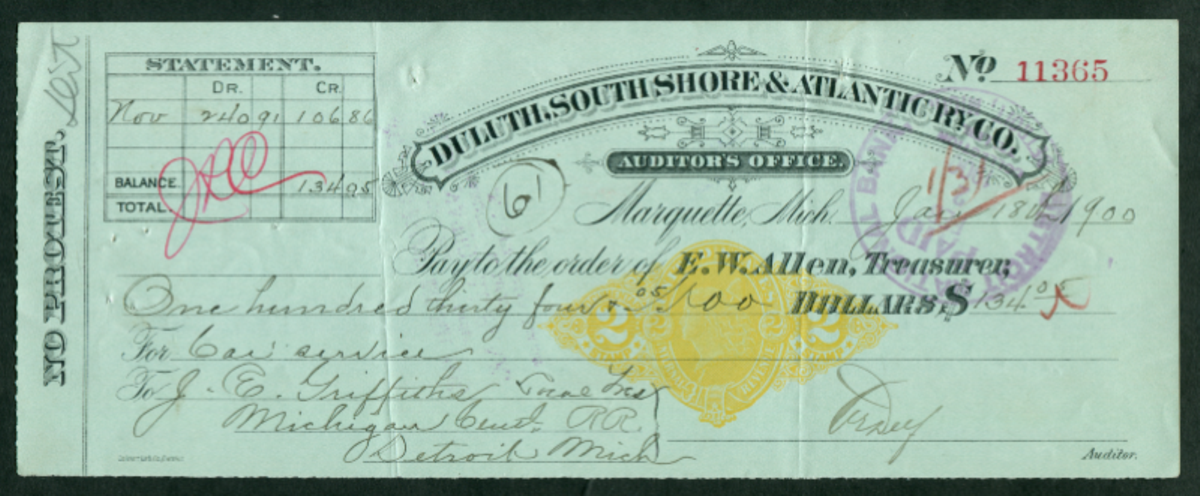 NO PROTEST.
STATEMENT.
DR. CR.
Nov 240 91 106 86
BALANCE 134 05
TOTAL.
No. 11365
DULUTH, SOUTH SHORE & ATLANTIC RY. CO.
AUDITOR'S OFFICE.
61
Marquette, Mich. Jan 18th 1900
Pay to the order of E. W. Allen, Treasurer,
One hundred thirty four & 05/100 DOLLARS, $ 134 05
For Car service
To J. E. Griffiths Local Treas
Michigan Cent. RR.
Detroit Mich
Auditor.
2 2
NATIONAL BANK
PAID
DETROIT